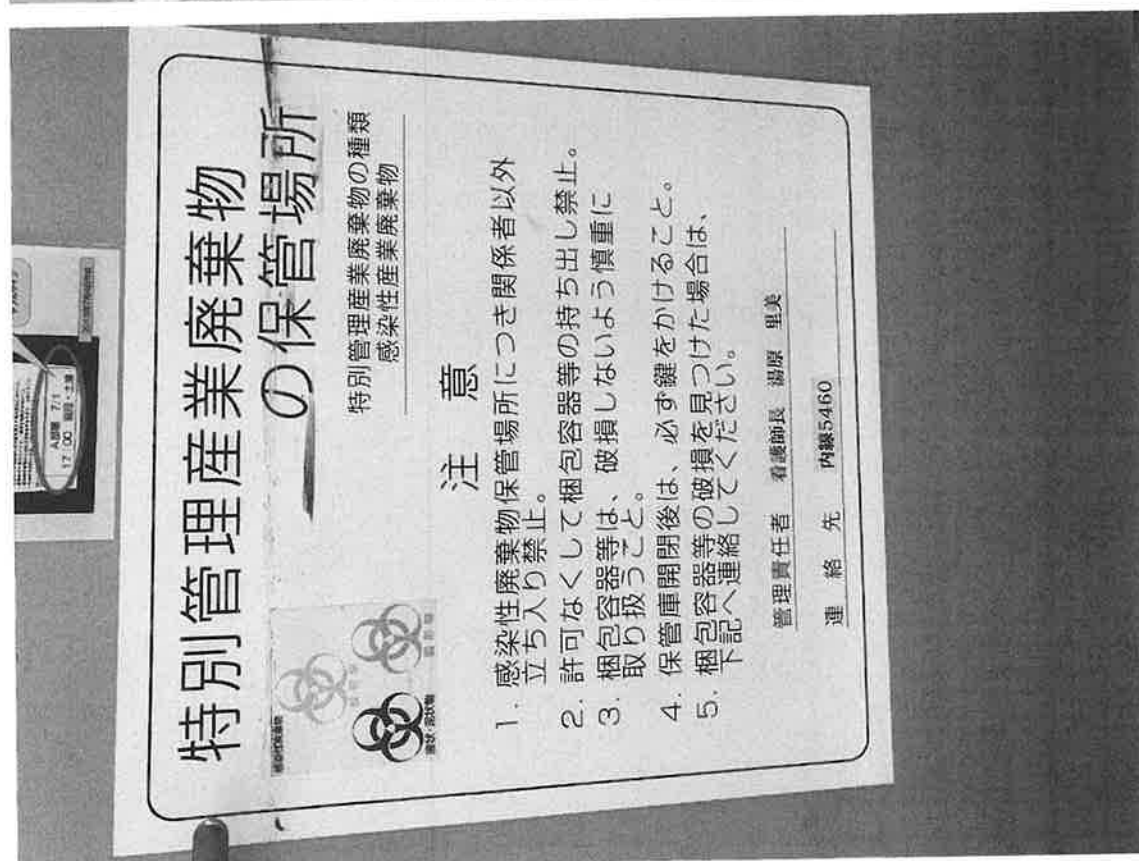 特別管理産業廃棄物
の保管場所
特別管理産業廃棄物の種類
感染性産業廃棄物
注 意
1. 感染性廃棄物保管場所につき関係者以外
立ち入り禁止。
2. 許可なくして梱包容器等の持ち出し禁止。
3. 梱包容器等は、破損しないよう慎重に
取り扱うこと。
4. 保管庫開閉後は、必ず鍵をかけること。
5. 梱包容器等の破損を見つけた場合は、
下記へ連絡してください。
管理責任者 看護師長 湯原 里美
連 絡 先 内線5460